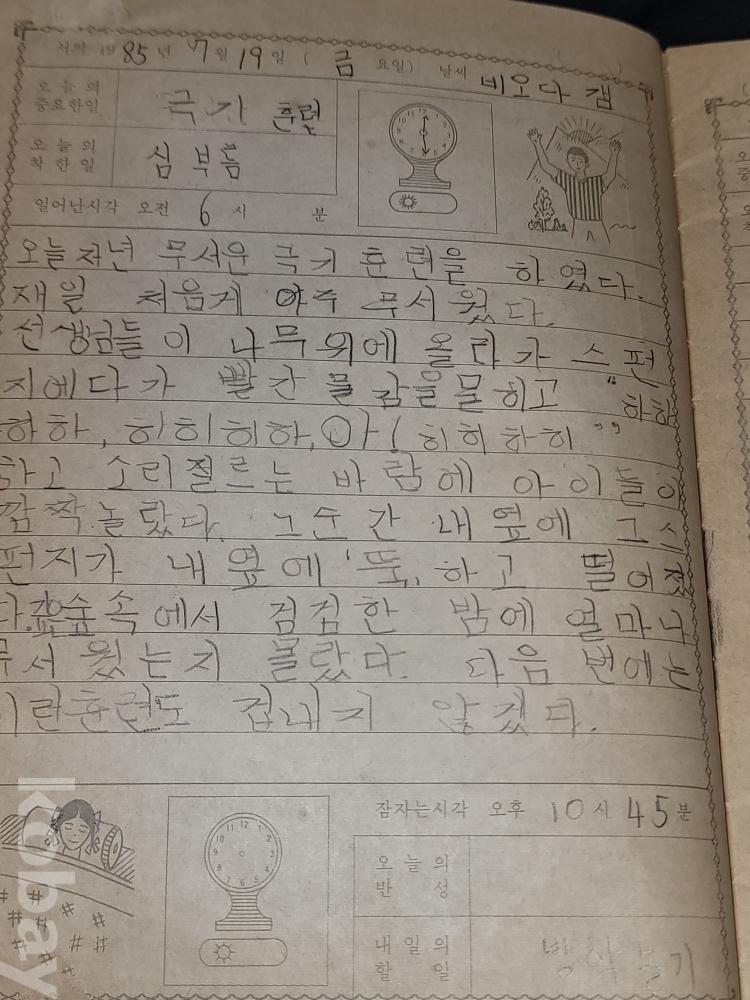 서기 1985년 7월 19일 (금요일) 날씨 비오다 갬
오늘의 중요한일 극기 훈련
오늘의 착한일 심부름
일어난시각 오전 6시 분
오늘저년 무서운 극기 훈련을 하였다.
재일 처음게 아주 무서웠다.
선생님들이 나무위에 올라가 스펀
지에다가 빨간 물감을 물히고 "하하
하하, 히히히하, 아! 히히하히"
하고 소리질르는 바람에 아이들이
깜짝놀랐다. 그순간 내옆에 그스
펀지가 내옆에 '뚝, 하고 떨어졌
다. 숲속에서 검검한 밤에 얼마나
무서웠는지 몰랐다. 다음번에는
이런훈련도 겁내지 않겠다.
잠자는시각 오후 10시 45분
오늘의 반성
내일의 할일
kobay